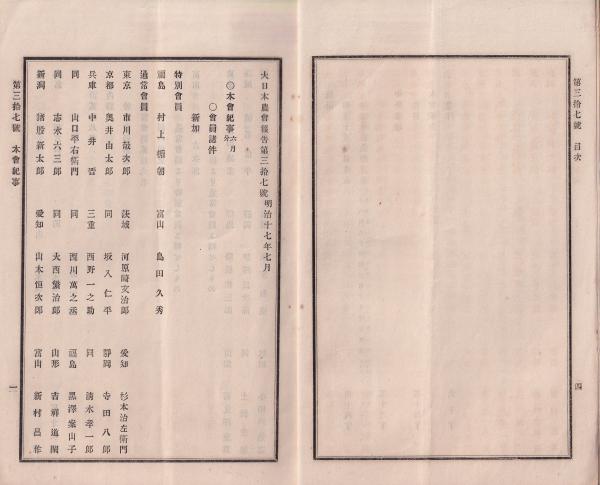 第三拾七號 目次
四
大日本農會報告第三拾七號 明治十七年七月
〇本會紀事 六月分
〇會員諸件
新加
特別會員
福島 村上楯朝 富山 島田久秀
通常會員
東京 市川哉次郎 茨城 河原崎文治郎 愛知 杉本治左衛門
京都 奥井由太郎 同 坂入仁平 靜岡 寺田八郎
兵庫 中井晋 三重 西野一之助 同 清水孝一郎
同 山口平右衛門 同 西川萬之丞 福島 黒澤案山子
同 志水六三郎 同 大西繁治郎 山形 吉祥道開
新潟 諸股新太郎 愛知 山本恒次郎 富山 新村昌作
第三拾七號 本會紀事
一